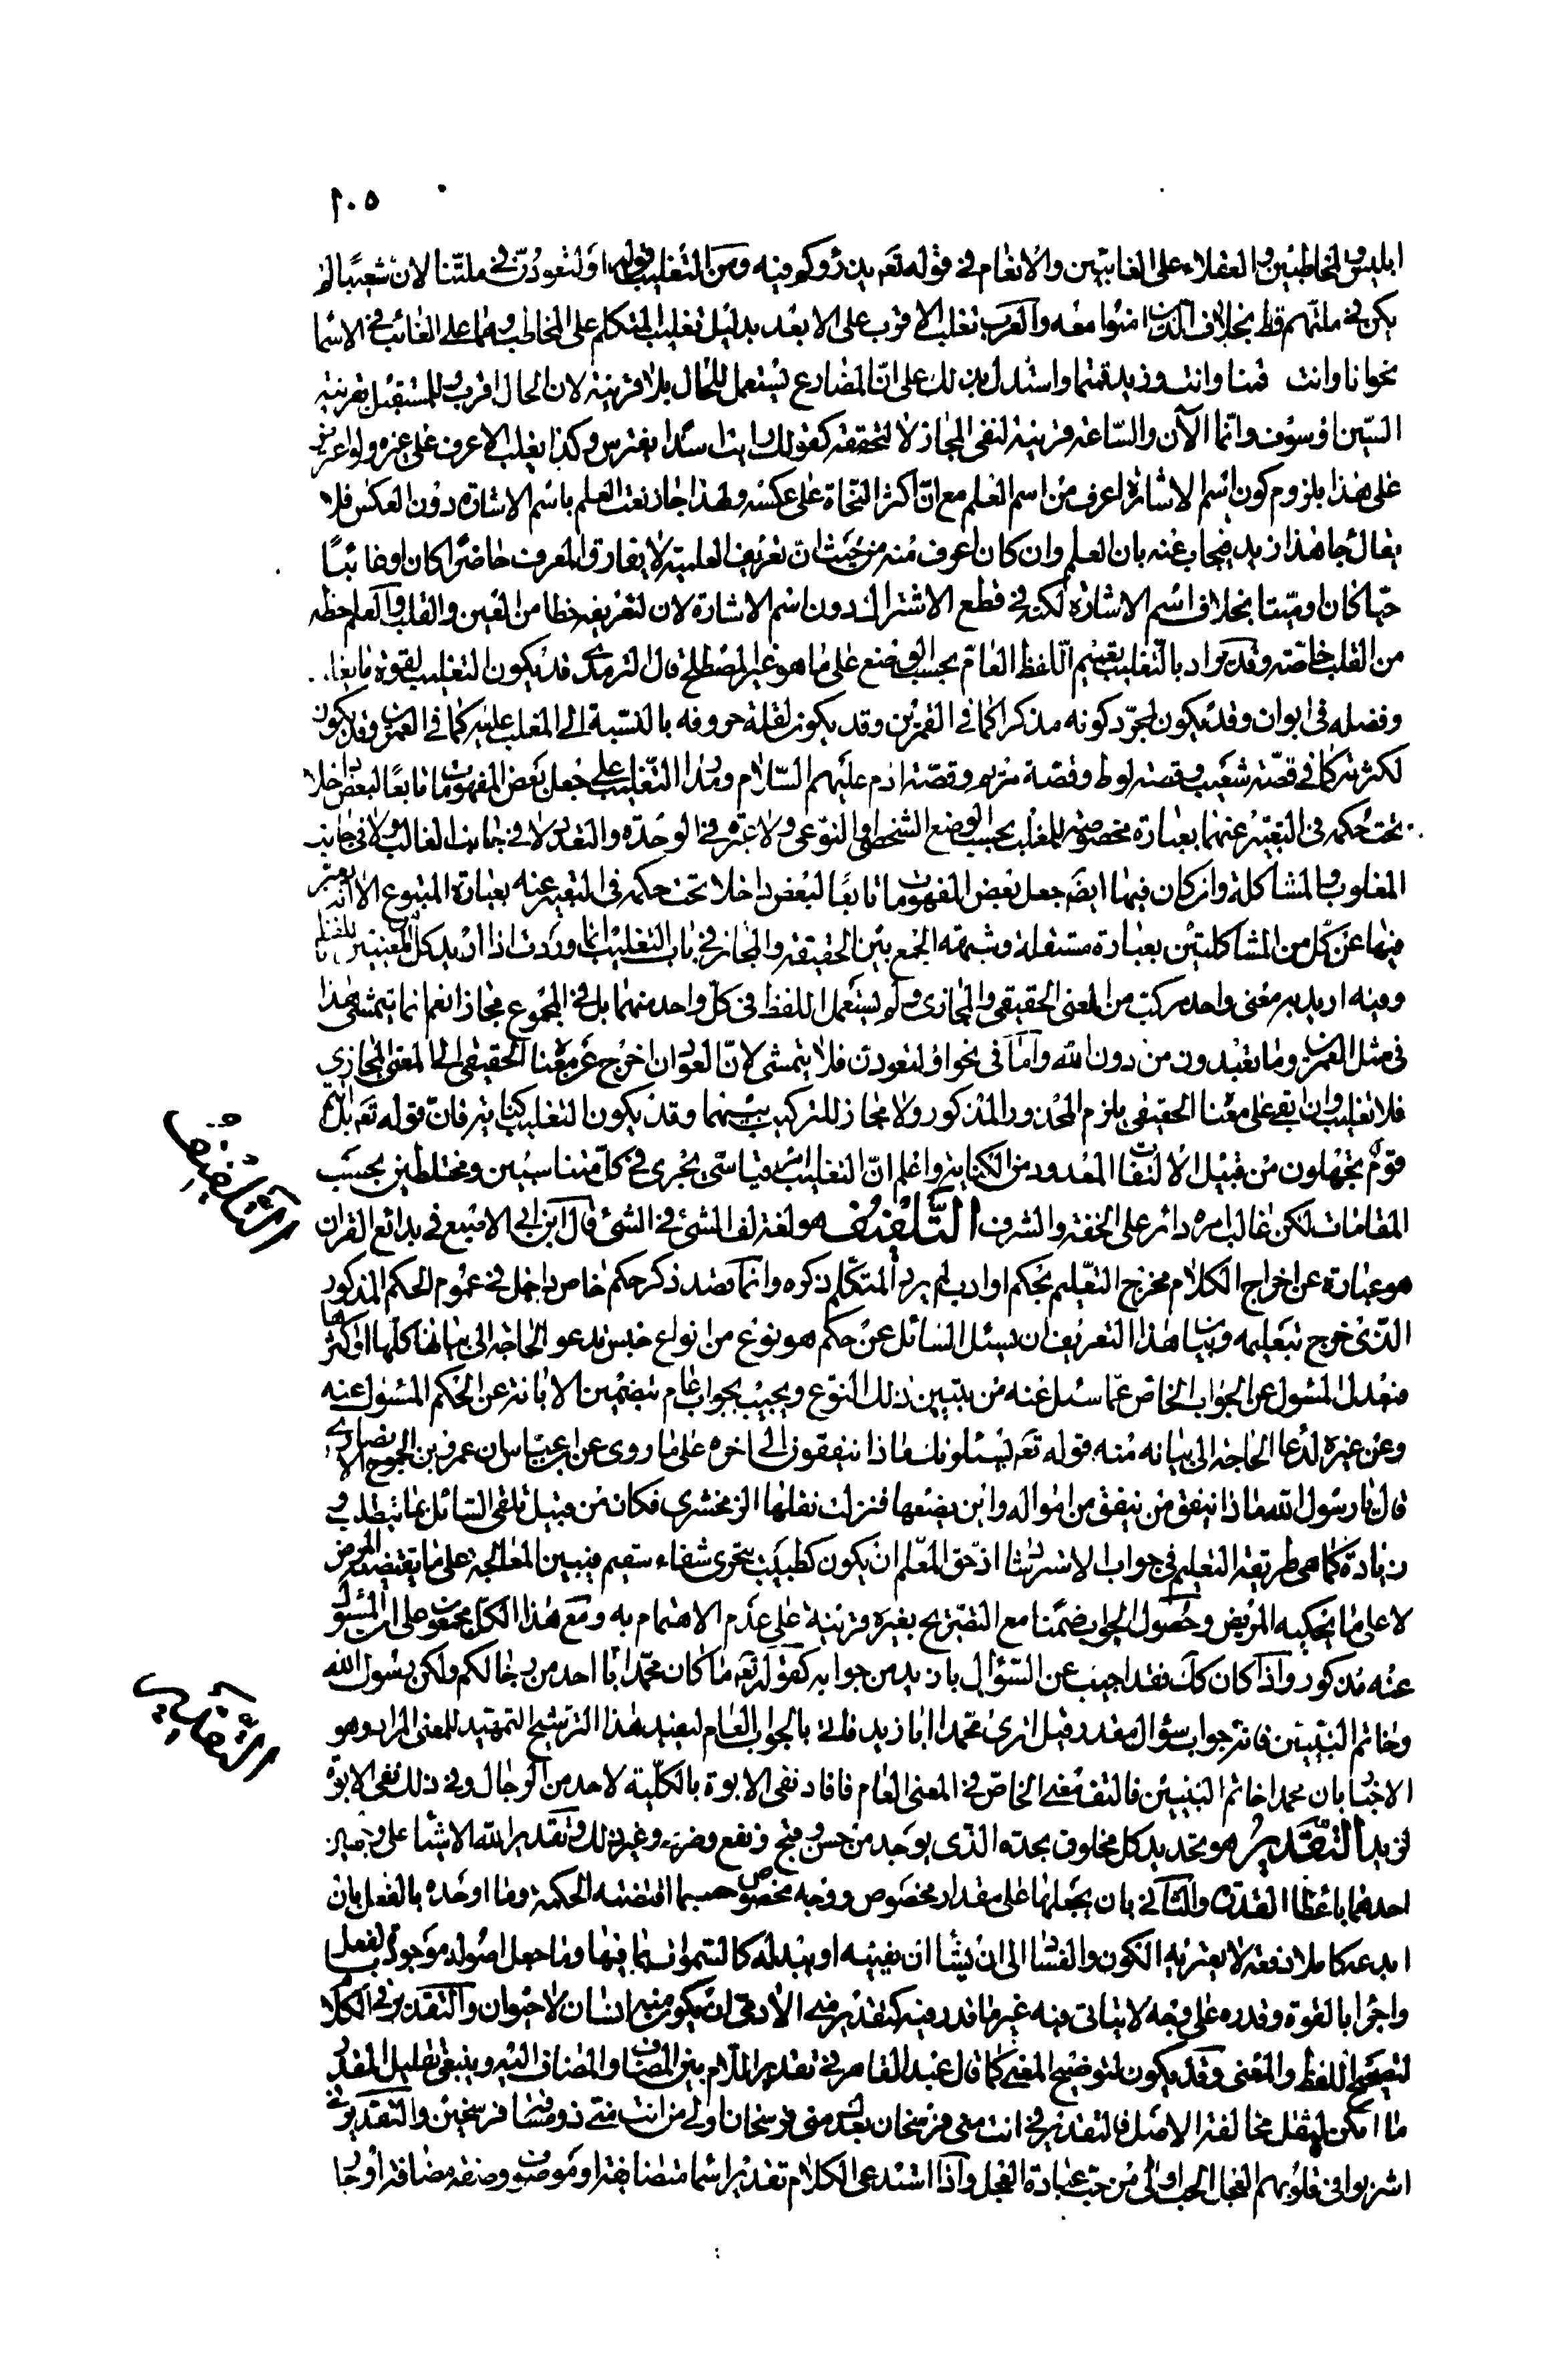 ١٠٥
ابليس والمخاطبين والعقلاء على الغائبين والانعام في قوله تعم يذرؤكم فيه ومن التغليب قوله او لتعودن في ملتنا لان شعيبا لم
يكن في ملتهم قط بخلاف الذين امنوا معه والعرب تغلب الاقرب على الابعد بدليل تغليب المتكلم على المخاطب وهما على الغائب في الاسما
نحو انا وانت قمنا وانت وزيد قمتما واستدل بذلك على ان المضارع يستعمل للحال بلا قرينة لان الحال اقرب وللمستقبل بقرينة
السين او سوف وانما الآن والساعة قرينة لنفى المجاز لا لتحققه كقولك رايت اسدا يفترس وكذا يغلب الاعرف على غيره ولو اعترض
على هذا بلزوم كون اسم الاشارة اعرف من اسم العلم مع ان اكثر النحاة على عكسه ولهذا جاز نعت العلم باسم الاشارة دون العكس فلا
يقال جا هذا زيد فيجاب عنه بان العلم وان كان اعرف منه من حيث ان تعريف العلمية لا يفارق المعرف حاضرا كان او غائبا
حيا كان او ميتا بخلاف اسم الاشارة لكنه في قطع الاشتراك دون اسم الاشارة لان لتعريفه خطا من العين والقلب والعلم حظه
من القلب خاصة وقد يراد بالتغليب تعميم اللفظ العام بحسب الوضع على ما هو غير المصطلح قال الترمذى قد يكون التغليب لقوة ما يغا
وفضله في ابوان وقد يكون لمجرد كونه مذكرا كما في القمرين وقد يكون لقلة حروفه بالنسبة الى المغلب عليه كما في العمرين وقد يكون
لكثرته كما في قصة شعيب وقصة لوط وقصة مريم وقصة ادم عليهم السلام ومدار التغليب على جعل بعض المفهومات تابعا لبعض داخلا
تحت حكمه في التعبير عنهما بعبارة مخصوصة للمغلب بحسب الوضع الشخصى او النوعى ولا عبرة في الوحدة والتعدد لا في جانب الغالب ولا في جانب
المغلوب والمشاكلة وان كان فيها ايضم جعل بعض المفهومات تابعا لبعض داخلا تحت حكمه في التعبير عنه بعبارة المتبوع الا انه يعبر
فيها عن كل من المشاكلتين بعبارة مستقلة وشبهة الجمع بين الحقيقة والمجاز في باب التغليب انما وردت اذا اريد كل من المعنيين باللفظ
وفيه اريد به معنى واحد مركب من المعنى الحقيقى والمجازى ولم يستعمل اللفظ في كل واحد منهما بل في المجموع مجازا نعم انما يتمشى هذا
في مثل العمرين وما تعبدون من دون الله واما في نحو او لتعودن فلا يتمشى لان العود ان اخرج عن معنا الحقيقى الى المعنى المجازى
فلا تغليب وان بقى على معنا الحقيقى يلزم المحذور المذكور ولا مجاز للتركيب بينهما وقد يكون التغليب كناية فان قوله تعم بل انتم
قوم تجهلون من قبيل الالتفات المعدود من الكناية واعلم ان التغليب امر قياسى يجرى في كل متناسبين ومختلطين بحسب
المقامات لكن غالب امره دائر على الخفة والشرف التلفيف هو لغة لف الشئ في الشئ قال ابن ابى الاصبع في بدائع القران
هو عبارة عن اخراج الكلام مخرج التعليم بحكم او ادب لم يرد المتكلم ذكره وانما قصد ذكر حكم خاص داخل في عموم الحكم المذكور
الذى خرج بتعليمه وبيان هذا التعريف ان يسئل السائل عن حكم هو نوع من انواع جنس تدعو الحاجة الى بيانها كلها او اكثرها
فيعدل المسئول عن الجواب الخاص عما سئل عنه من تبيين ذلك النوع ويجيب بجواب عام يتضمن الابانة عن الحكم المسئول عنه
وعن غيره لدعا الحاجة الى بيانه منه قوله تعم يسئلونك ماذا ينفقون الى اخره على ما روى عن ابن عباس ان عمرو بن الجموح الانصارى
قال يا رسول الله ماذا ينفق من ينفق من امواله واين يضعها فنزلت نقلها الزمخشرى فكان من قبيل تلقى السائل بما يتطلب و
زيادة كما هى طريقة التعليم في جواب الاسترشاد اذ حق المعلم ان يكون كطبيب يتحرى شفاء سقيم فيبين المعالجة على ما يقتضيه المرض
لا على ما يحكيه المريض وحصول الجواب ضمنا مع التصريح بغيره قرينة على عدم الاهتمام به ومع هذا الكل مجمعون على ان المسئول
عنه مذكور واذا كان كك فقد اجيب عن السؤال بازيد من جوابه كقوله تعم ما كان محمد ابا احد من رجالكم ولكن رسول الله
وخاتم النبيين فانه جواب سؤال مقدر قيل اترى محمدا ابا زيد فاتى بالجواب العام ليفيد هذا الترشيح التمهيد للمعنى المراد وهو
الاخبار بان محمدا خاتم النبيين فالتف معنى الخاص في المعنى العام فافاد نفى الابوة بالكلية لاحد من الرجال وفى ذلك نفى الابوة
لزيد التقدير هو تحديد كل مخلوق بحده الذى يوجد من حسن وقبح ونفع وضر وغير ذلك وتقدير الله الاشيا على وجهين
احدهما باعطا القدرة والثانى بان يجعلها على مقدار مخصوص ووجه مخصوص حسبما اقتضته الحكمة وما اوجده بالفعل بان
ابدعه كاملا دفعة لا يعتريه الكون والفساد الى ان يشا ان يفنيه او يبدله كالسموات بما فيها وما جعل اصوله موجودة بالفعل
واجزا بالقوة وقدره على وجه لا يتاتى فيه غير ما قدر فيه كتقدير منى الآدمى ان يكون منه انسان لا حيوان والتقدير في الكلام
لتصحيح اللفظ والمعنى وقد يكون لتوضيح المعنى كما قال عبد القاهر في تقدير اللام بين المضاف والمضاف اليه وينبغى تقليل المقدر
ما امكن ليقل مخالفة الاصل فالتقدير في انت منى فرسخان بعدك منى فرسخان اولى من انت منى ذو مسافة فرسخين والتقدير في
اشربوا في قلوبهم العجل الحب اولى من حب عبادة العجل واذا استدعى الكلام تقدير اسما متضايفة او موصوف وصفة مضافة او جا
التلفيف
التقدير